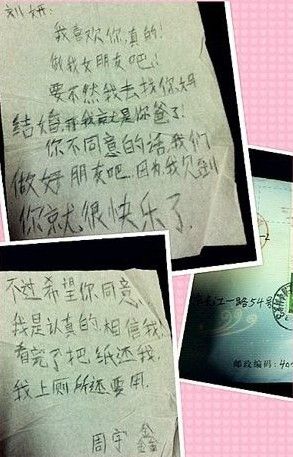 刘妍:
我喜欢你,真的!
做我女朋友吧!
要不然我去找你妈
结婚,那我就是你爸了!
你不同意的话,我们
做好朋友吧.因为我见到
你就很快乐了.
不过希望你同意,
我是认真的,相信我!
看完了把,纸还我,
我上厕所还要用.
周宇鑫
长江一路54号
邮政编码:40